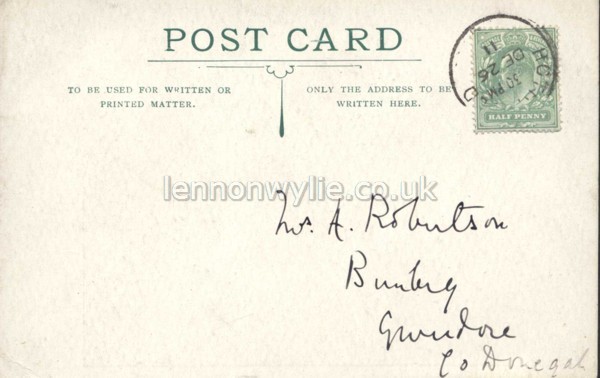 POST CARD
TO BE USED FOR WRITTEN OR
PRINTED MATTER.
ONLY THE ADDRESS TO BE
WRITTEN HERE.
HALF PENNY
11
26
lennonwylie.co.uk
A. Robertson
Bunbeg
Gweedore
Co Donegal